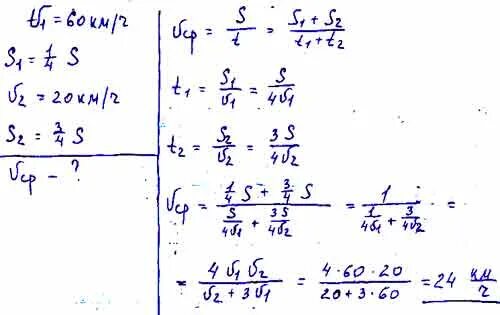 v₁ = 60 км/ч
S₁ = 1/4 S
v₂ = 20 км/ч
S₂ = 3/4 S
vср - ?
vср = S/t = (S₁ + S₂)/(t₁ + t₂)
t₁ = S₁/v₁ = S/(4v₁)
t₂ = S₂/v₂ = 3S/(4v₂)
vср = (1/4 S + 3/4 S)/(S/(4v₁) + 3S/(4v₂)) = 1/(1/(4v₁) + 3/(4v₂)) =
= (4 v₁ v₂)/(v₂ + 3v₁) = (4 · 60 · 20)/(20 + 3 · 60) = 24 км/ч